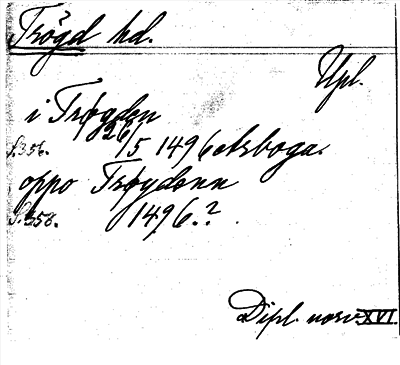 Trögd hd.
Upl.
i Trøgden
S. 356. 26/5 1496 avskr. boga.
oppo Trøgdenn
S. 358. 1496.?
Dipl. norv. XVI.